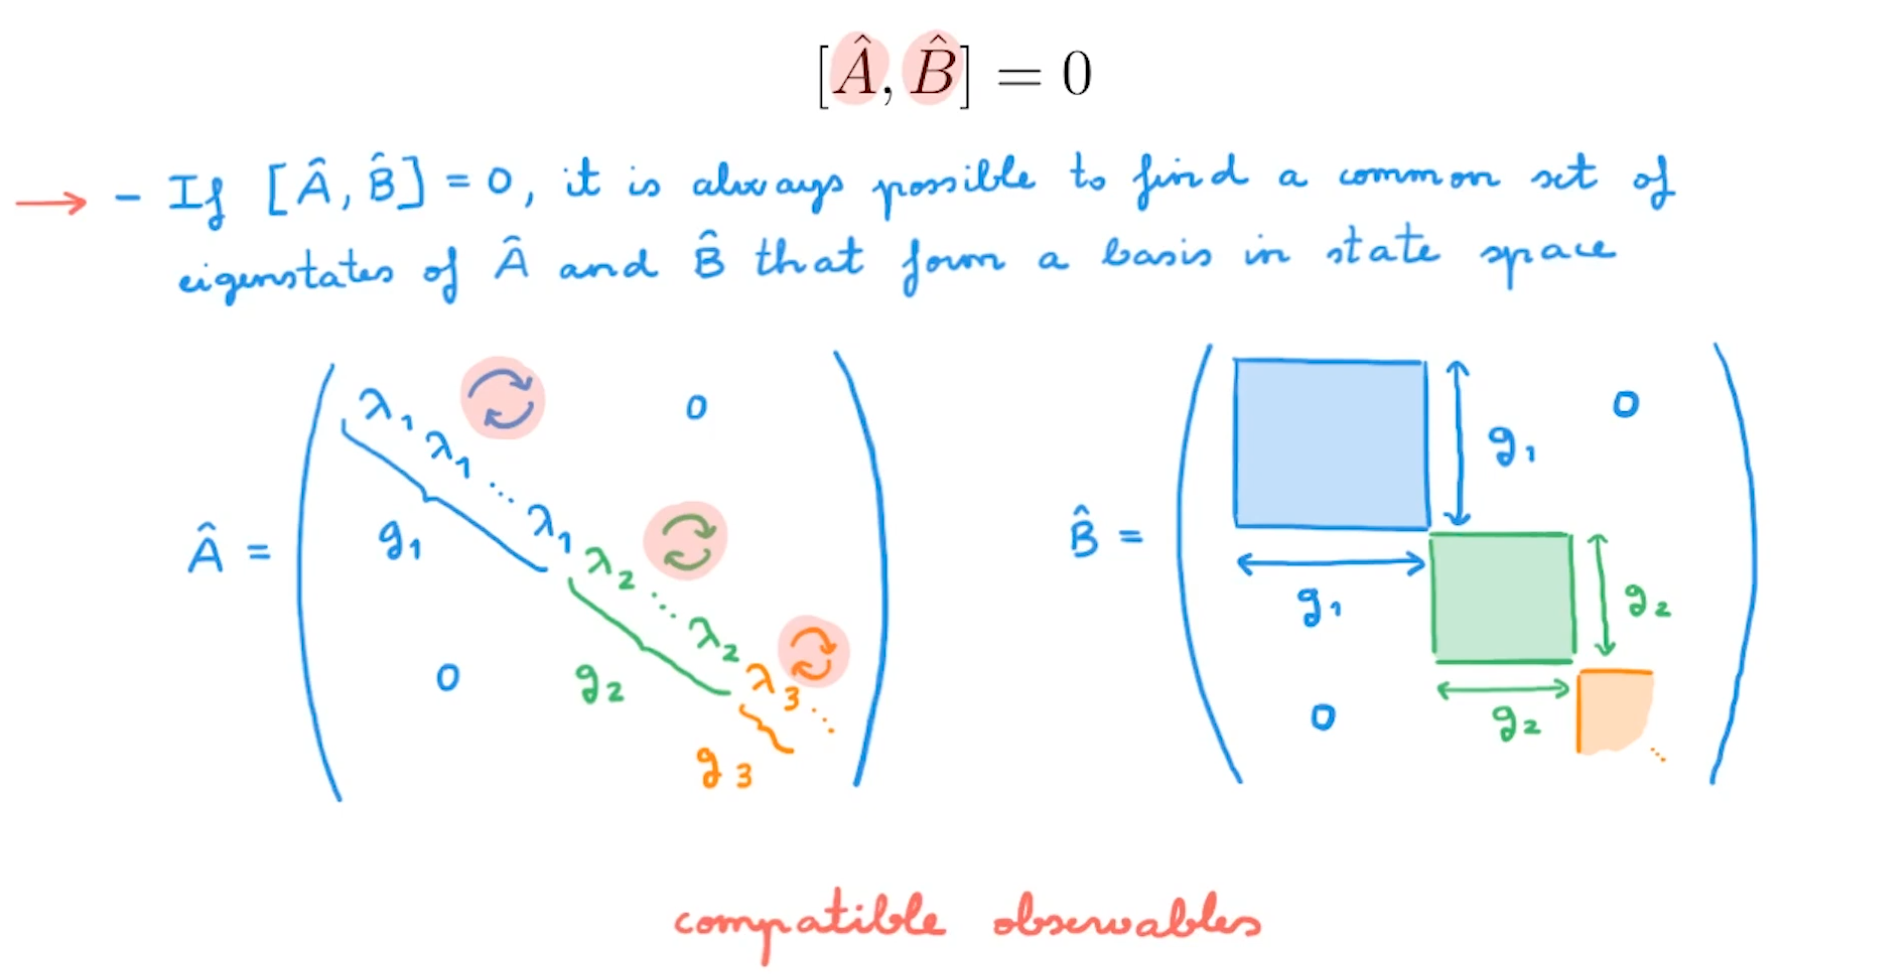 [Â, B̂] = 0
→ - If [Â, B̂] = 0, it is always possible to find a common set of
eigenstates of Â and B̂ that form a basis in state space
Â =
λ₁
λ₁
⋱
λ₁
λ₂
⋱
λ₂
λ₃
⋱
g₁
g₂
g₃
0
0
B̂ =
g₁
g₁
g₂
g₂
0
0
⋱
compatible observables